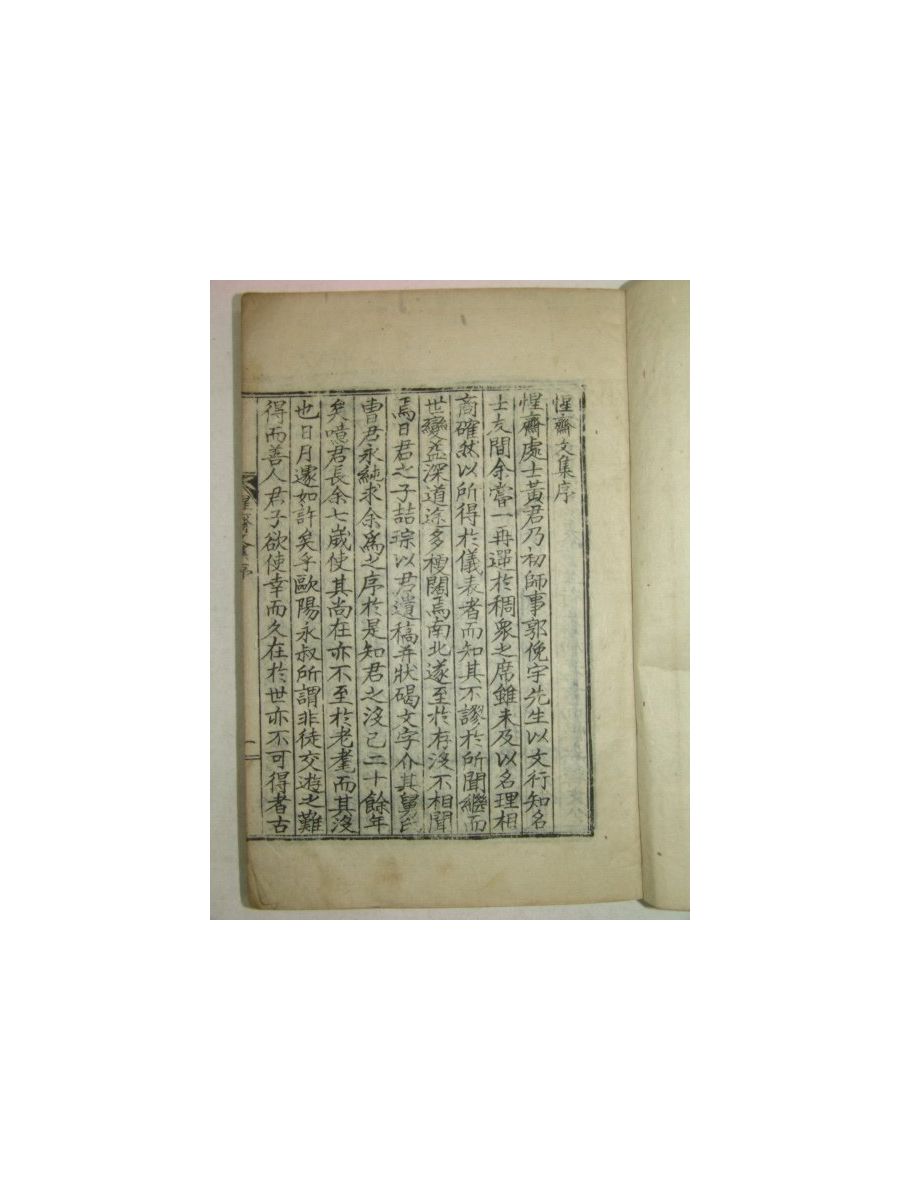 惺齋文集序
惺齋處士黃君乃初師事郭俛宇先生以文行知名
士友間余嘗一再選於稠衆之席雖未及以名理相
商確然以所得於儀表者而知其不謬於所聞繼而
世變益深道途多梗闊焉南北遂至於存沒不相聞
焉日君之子喆琮以君遺稿並狀碣文字介其舅氏
曹君永純求余爲之序於是知君之沒已二十餘年
矣噫君長余七歲使其尚在亦不至於老耄而其沒
也日月遽如許矣乎歐陽永叔所謂非徒交遊之難
得而善人君子欲使幸而久在於世亦不可得者古